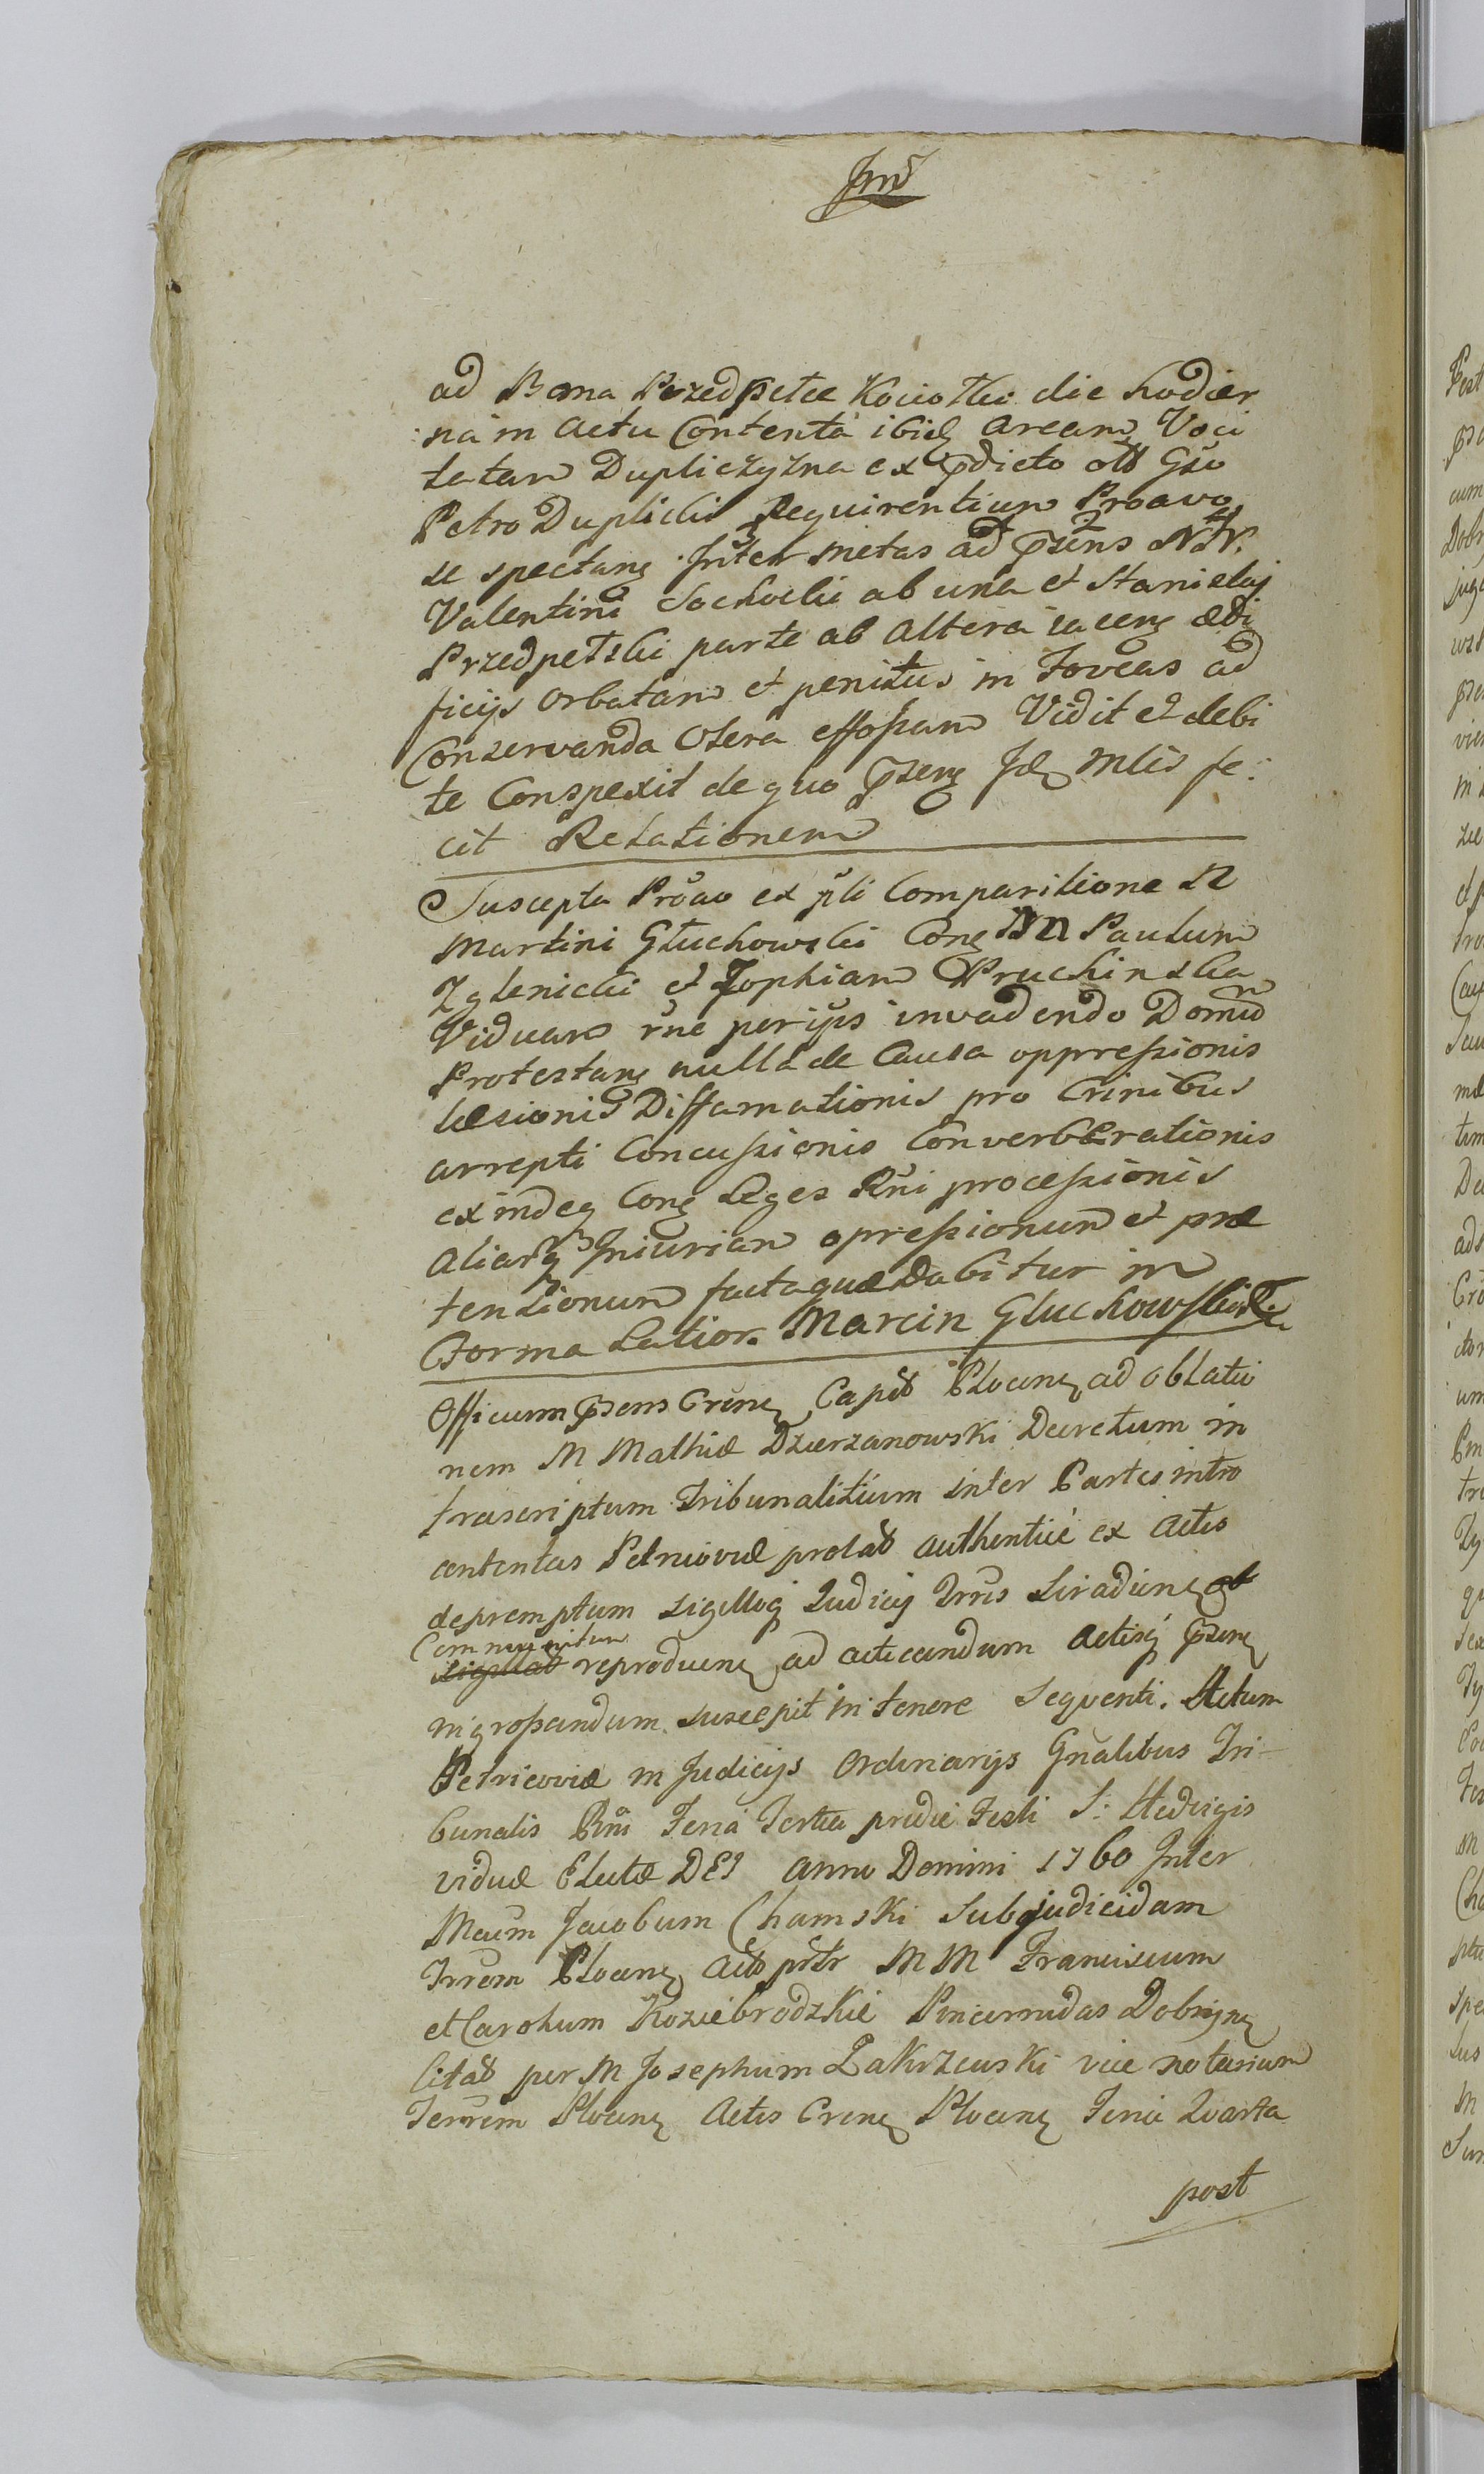 ad Bona Przedpełce Kociołki die hodier
na in actu Contenta ibidq aream Voci
tatam Dupliczyzna ex pdicto olt Gso
Petro Duplicki Requirentium Proavo
se spectanq Inter metas ad psens NN.
Valentini Sochocki ab una et Stanislaj
Przedpełski parte ab altera iacenq ædi
ficijs orbatam et penitus in Foveas ad
Conservanda Olera effossam Vidit et debi
te Conspexit de quo psenq Idq Mlis fe:
cit Relationem
Suscepta Proao ex pli Comparitione N
Martini Głuchowski Conq NN Paulum
Zglenicki et Zophiam Pruchinska
Viduam rne perijs invadendo Domu
Protestanq nulla de Causa oppressionis
læsionis Diffamationis pro Crinibus
arrepti Concussionis Converberationis
exindeq Conq Leges Rni processionis
aliarq Iniuriar opressionum et præ
tensionum facta quæ Dabitur in
Forma Latior. Marcin Głuchowski
Officium psens Crenq Capit Plocenq ad oblatio
nem M Mathiæ Dzierzanowski Decretum in
frascriptum Tribunalitium inter Partes intro
contentas Petricoviæ prolat authenticè ex Actis
depromptum sigilloq Iudicij Trris Siradienq
Communitum
reproducenq ad acticandum Actisq psenq
ingrossandum suscepit in tenore sequenti. Actum
Petricoviæ in Judicijs Ordinarijs Gnalibus Tri-
bunalis Rni Feria Tertia pridie Festi S: Hedvigis
viduæ Electæ DEI Anno Domini 1760 Inter
Mcum Jacobum Chamski Subjudicidam
Trrem Plocenq M M Franciscum
et Carolum Koziebrodzkie Pincernidas Dobrynq
Citat per M Josephum Zakrzewski vice notarium
Terrem Plocenq Actis Crenq Plocenq Feria Qvarta
post